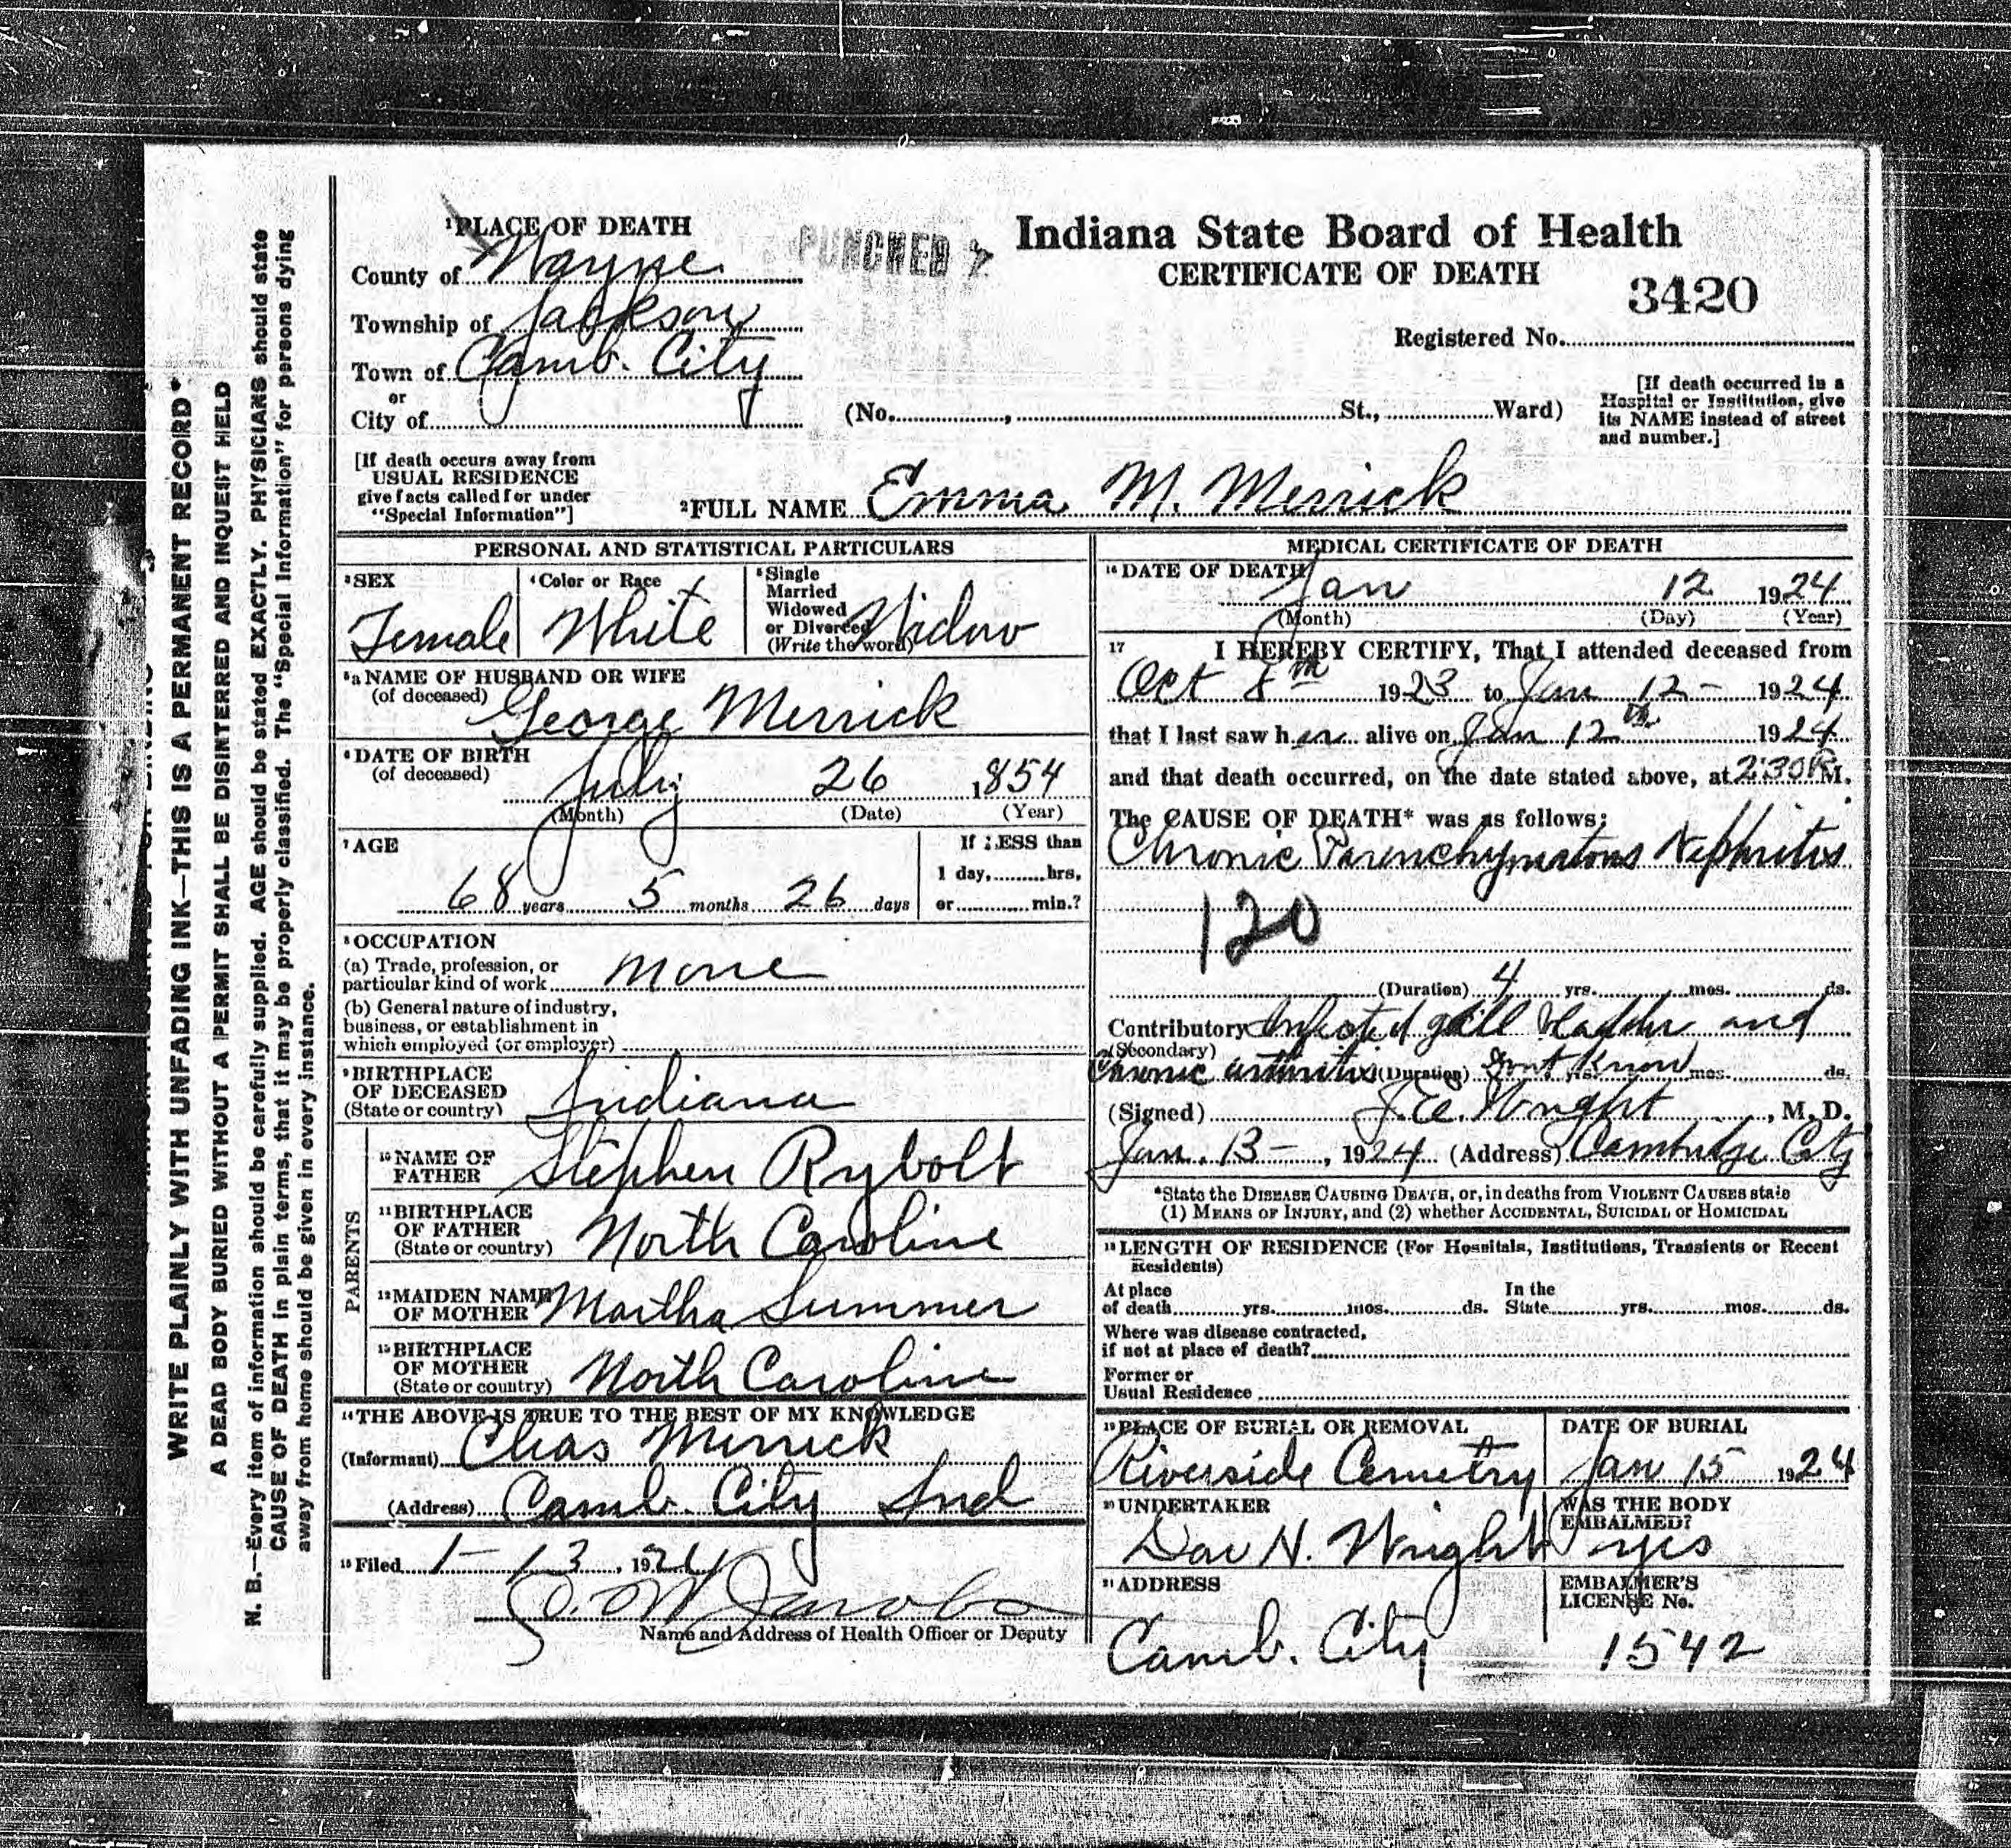 WRITE PLAINLY WITH UNFADING INK—THIS IS A PERMANENT RECORD
A DEAD BODY BURIED WITHOUT A PERMIT SHALL BE DISINTERRED AND INQUEST HELD
N. B.—Every item of information should be carefully supplied. AGE should be stated EXACTLY. PHYSICIANS should state
CAUSE OF DEATH in plain terms, that it may be properly classified. The "Special Information" for persons dying
away from home should be given in every instance.
1PLACE OF DEATH
County of Wayne
Township of Jackson
Town of Camb. City
or
City of
PUNCHED
Indiana State Board of Health
CERTIFICATE OF DEATH
3420
Registered No.
(No. , St., Ward)
[If death occurred in a
Hospital or Institution, give
its NAME instead of street
and number.]
[If death occurs away from
USUAL RESIDENCE
give facts called for under
"Special Information"]
2FULL NAME Emma M. Merrick
PERSONAL AND STATISTICAL PARTICULARS
3SEX
Female
4Color or Race
White
5Single
Married
Widowed
or Divorced
(Write the word)
Widow
5a NAME OF HUSBAND OR WIFE
(of deceased)
George Merrick
6DATE OF BIRTH
(of deceased)
July 26 1854
(Month) (Date) (Year)
7AGE
68 years 5 months 26 days
If LESS than
1 day, hrs,
or min.?
8OCCUPATION
(a) Trade, profession, or
particular kind of work none
(b) General nature of industry,
business, or establishment in
which employed (or employer)
9BIRTHPLACE
OF DECEASED
(State or country) Indiana
PARENTS
10NAME OF
FATHER Stephen Rybolt
11BIRTHPLACE
OF FATHER
(State or country) North Caroline
12MAIDEN NAME
OF MOTHER Martha Summer
13BIRTHPLACE
OF MOTHER
(State or country) North Caroline
14THE ABOVE IS TRUE TO THE BEST OF MY KNOWLEDGE
(Informant) Merrick
(Address) Camb. City Ind
15Filed 1-13, 1924
Jacobs
Name and Address of Health Officer or Deputy
MEDICAL CERTIFICATE OF DEATH
16DATE OF DEATH
Jan 12 1924
(Month) (Day) (Year)
17 I HEREBY CERTIFY, That I attended deceased from
Oct 8th 1923 to Jan 12- 1924
that I last saw her alive on Jan 12th 1924
and that death occurred, on the date stated above, at 2:30 P.M.
The CAUSE OF DEATH* was as follows:
Chronic Parenchymatous Nephritis
120
(Duration) 4 yrs. mos. ds.
Contributory Infected gall bladder and
(Secondary)
Chronic arthritis (Duration) Dont Know yrs. mos. ds.
(Signed) J. E. Wright, M. D.
Jan. 13-, 1924 (Address) Cambridge City
*State the DISEASE CAUSING DEATH, or, in deaths from VIOLENT CAUSES state
(1) MEANS OF INJURY, and (2) whether ACCIDENTAL, SUICIDAL or HOMICIDAL
18LENGTH OF RESIDENCE (For Hospitals, Institutions, Transients or Recent
Residents)
At place In the
of death yrs. mos. ds. State yrs. mos. ds.
Where was disease contracted,
if not at place of death?
Former or
Usual Residence
19PLACE OF BURIAL OR REMOVAL
Riverside Cemetry
DATE OF BURIAL
Jan 15 1924
20UNDERTAKER
N. Wright
WAS THE BODY
EMBALMED?
yes
21ADDRESS
Camb. City
EMBALMER'S
LICENSE No.
1542